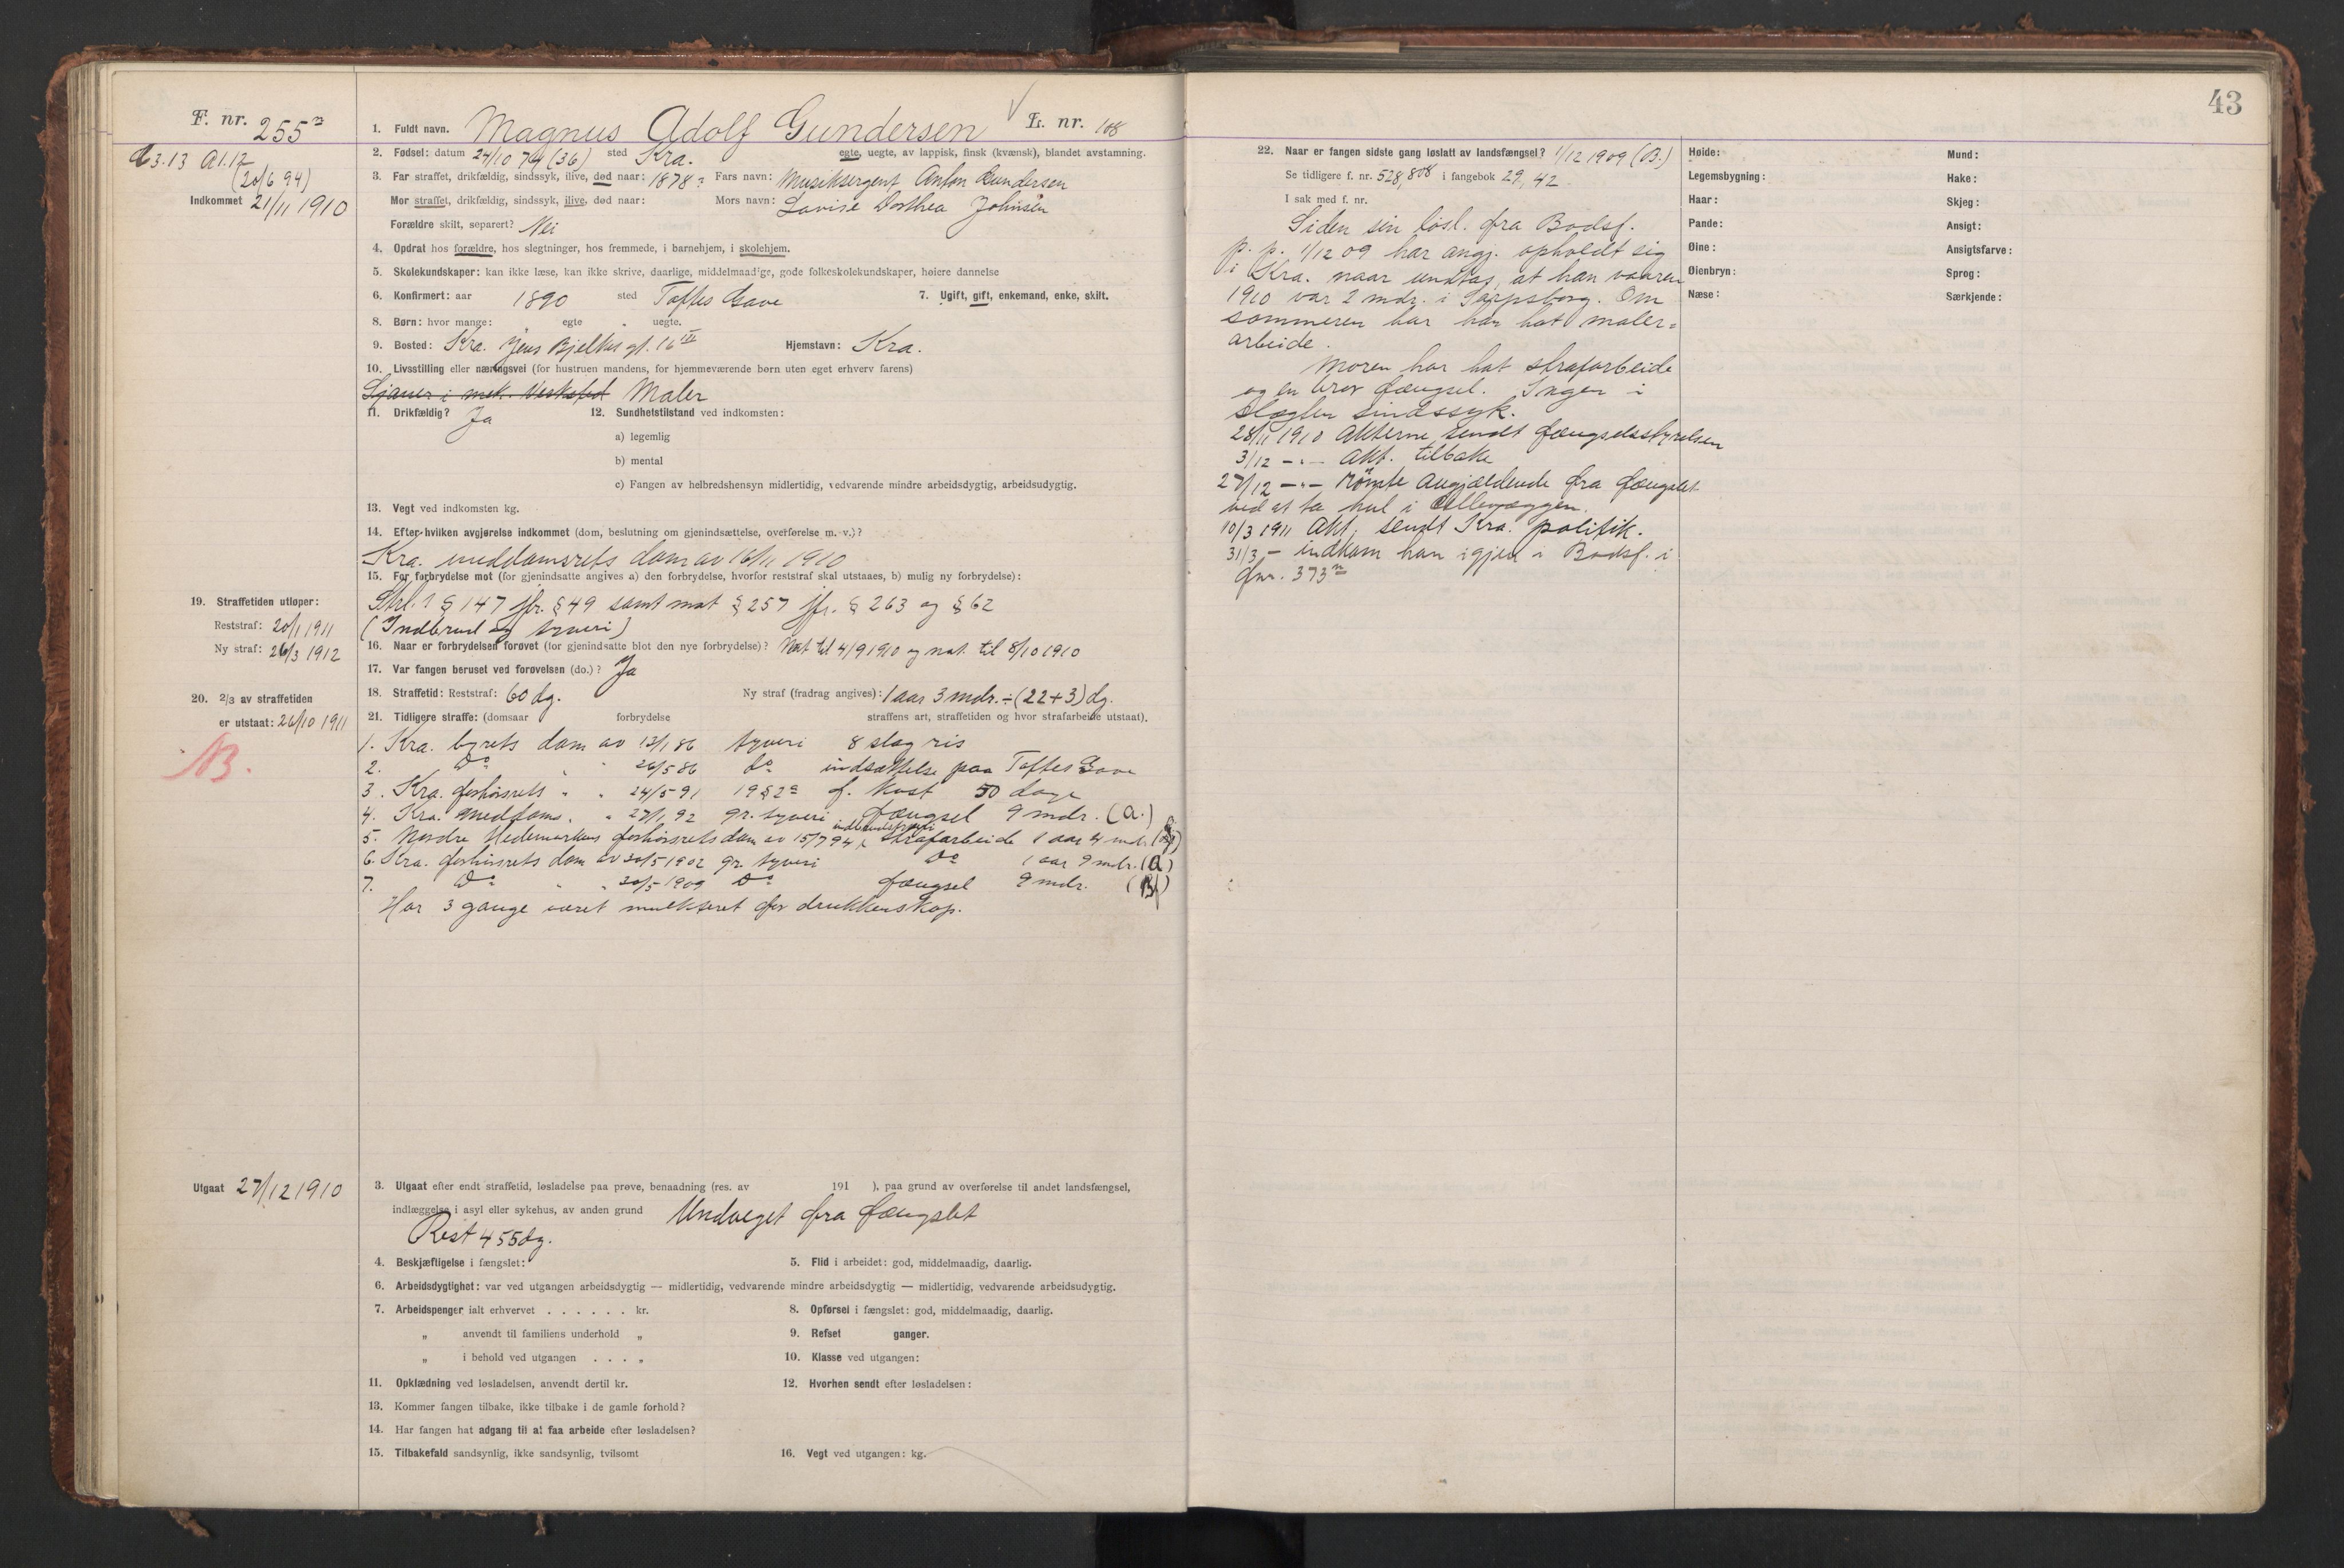 43
F. nr. 255
1. Fuldt navn. Magnus Adolf Gundersen L. nr. 108
(20/6 94)
Indkommet 21/11 1910
2. Fødsel: datum 24/10 74 (36) sted Kra. egte, uegte, av lappisk, finsk (kvænsk), blandet avstamning.
3. Far straffet, drikfældig, sindssyk, ilive, død naar: 1878 Fars navn: Musiksergent Anton Gundersen
Mor straffet, drikfældig, sindssyk, ilive, død naar: Mors navn: Lovise Dorthea Johnsen
Forældre skilt, separert? Nei
4. Opdrat hos forældre, hos slegtninger, hos fremmede, i barnehjem, i skolehjem.
5. Skolekundskaper: kan ikke læse, kan ikke skrive, daarlige, middelmaadige, gode folkeskolekundskaper, høiere dannelse
6. Konfirmert: aar 1890 sted Toftes Gave 7. Ugift, gift, enkemand, enke, skilt.
8. Børn: hvor mange: egte " uegte.
9. Bosted: Kra. Jens Bjelkes gt. 16 IV Hjemstavn: Kra.
10. Livsstilling eller næringsvei (for hustruen mandens, for hjemmeværende børn uten eget erhverv farens)
Sjauer i mek. Verksted Maler
11. Drikfældig? Ja 12. Sundhetstilstand ved indkomsten:
a) legemlig
b) mental
c) Fangen av helbredshensyn midlertidig, vedvarende mindre arbeidsdygtig, arbeidsudygtig.
13. Vegt ved indkomsten kg.
14. Efter hvilken avgjørelse indkommet (dom, beslutning om gjenindsættelse, overførelse m. v.)?
Kra. meddomsrets dom av 16/11 1910
15. For forbrydelse mot (for gjenindsatte angives a) den forbrydelse, hvorfor reststraf skal utstaaes, b) mulig ny forbrydelse):
Strl. § 147 jfr. § 49 samt mot § 257 jfr. § 263 og § 62
(Indbrud og tyveri)
16. Naar er forbrydelsen forøvet (for gjenindsatte blot den nye forbrydelse)? Nat til 4/9 1910 og nat til 8/10 1910
17. Var fangen beruset ved forøvelsen (do.)? Ja
18. Straffetid: Reststraf: 60 dg. Ny straf (fradrag angives): 1 aar 3 mdr. ÷ (22+3) dg.
19. Straffetiden utløper:
Reststraf: 20/1 1911
Ny straf: 26/3 1912
20. 2/3 av straffetiden
er utstaat: 26/10 1911
NB.
21. Tidligere straffe: (domsaar forbrydelse straffens art, straffetiden og hvor strafarbeide utstaat).
1. Kra. byrets dom av 13/1 86 tyveri 8 slag ris
2. Do " " 26/5 86 do indsættelse paa Toftes Gave
3. Kra. forhørsrets " " 24/5 91 19 § 2 f. Kost 50 dage
4. Kra. meddoms. " 27/1 92 gr. tyveri fængsel 9 mdr. (A.)
5. Nordre Hedemarkens forhørsrets dom av 15/7 94, indbrudstyveri strafarbeide 1 aar 4 mdr.
6. Kra. forhørsrets dom av 30/5 1902 gr. tyveri do 1 aar 9 mdr. (A)
7. Do " " 30/5 1909 do fængsel 9 mdr. (B)
Har 3 gange været mulkteret for drukkenskap.
Utgaat 27/12 1910
3. Utgaat efter endt straffetid, løsladelse paa prøve, benaadning (res. av 191 ), paa grund av overførelse til andet landsfængsel,
indlæggelse i asyl eller sykehus, av anden grund Undveget fra fængslet
Rest 455 dg.
4. Beskjæftigelse i fængslet: 5. Flid i arbeidet: god, middelmaadig, daarlig.
6. Arbeidsdygtighet: var ved utgangen arbeidsdygtig — midlertidig, vedvarende mindre arbeidsdygtig — midlertidig, vedvarende arbeidsudygtig.
7. Arbeidspenger ialt erhvervet . . . . . . kr. 8. Opførsel i fængslet: god, middelmaadig, daarlig.
" anvendt til familiens underhold " 9. Refset ganger.
" i behold ved utgangen . . . " 10. Klasse ved utgangen:
11. Opklædning ved løsladelsen, anvendt dertil kr. 12. Hvorhen sendt efter løsladelsen:
13. Kommer fangen tilbake, ikke tilbake i de gamle forhold?
14. Har fangen hat adgang til at faa arbeide efter løsladelsen?
15. Tilbakefald sandsynlig, ikke sandsynlig, tvilsomt 16. Vegt ved utgangen: kg.
22. Naar er fangen sidste gang løslatt av landsfængsel? 1/12 1909 (B.)
Se tidligere f. nr. 528, 808 i fangebok 29, 42.
I sak med f. nr.
Siden sin løsl. fra Bodsf.
p. p. 1/12 09 har angj. opholdt sig
i Kra. naar undtas, at han vaaren
1910 var 2 mdr. i Sarpsborg. Om
sommeren har han hat maler-
arbeide.
Moren har hat strafarbeide
og en bror fængsel. Ingen i
slægten sindssyk.
28/11 1910 Akterne sendt fængselsstyrelsen
3/12 -"- Akt. tilbake
27/12 -"- Rømte Angjældende fra fængslet
ved at ta hul i cellevæggen.
10/3 1911 Akt. sendt Kra. politik.
31/3 - indkom han igjen i Bodsf. i
fnr. 373
Høide:
Legemsbygning:
Haar:
Pande:
Øine:
Øienbryn:
Næse:
Mund:
Hake:
Skjeg:
Ansigt:
Ansigtsfarve:
Sprog:
Særkjende: